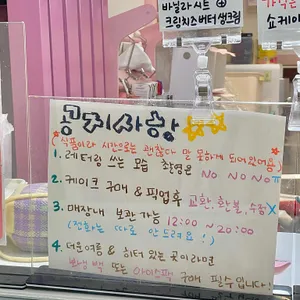 바닐라시트 ⊕
크림치즈버터생크림
쇼케이
공지사항 ☆☆
☆(식품이라 시간으로는 괜찮다 말 못하게 되어있어욤)
1. 레터링 쓰는 모습 촬영은 NO NO NO
2. 케이크 구매 & 픽업후 교환, 환불, 수정 X
3. 매장내 보관가능 12:00 ~ 20:00
(전화는 따로 안드려요!)
4. 더운여름 & 히터 있는 곳이라면
보냉백 또는 아이스팩 구매 필수입니다!